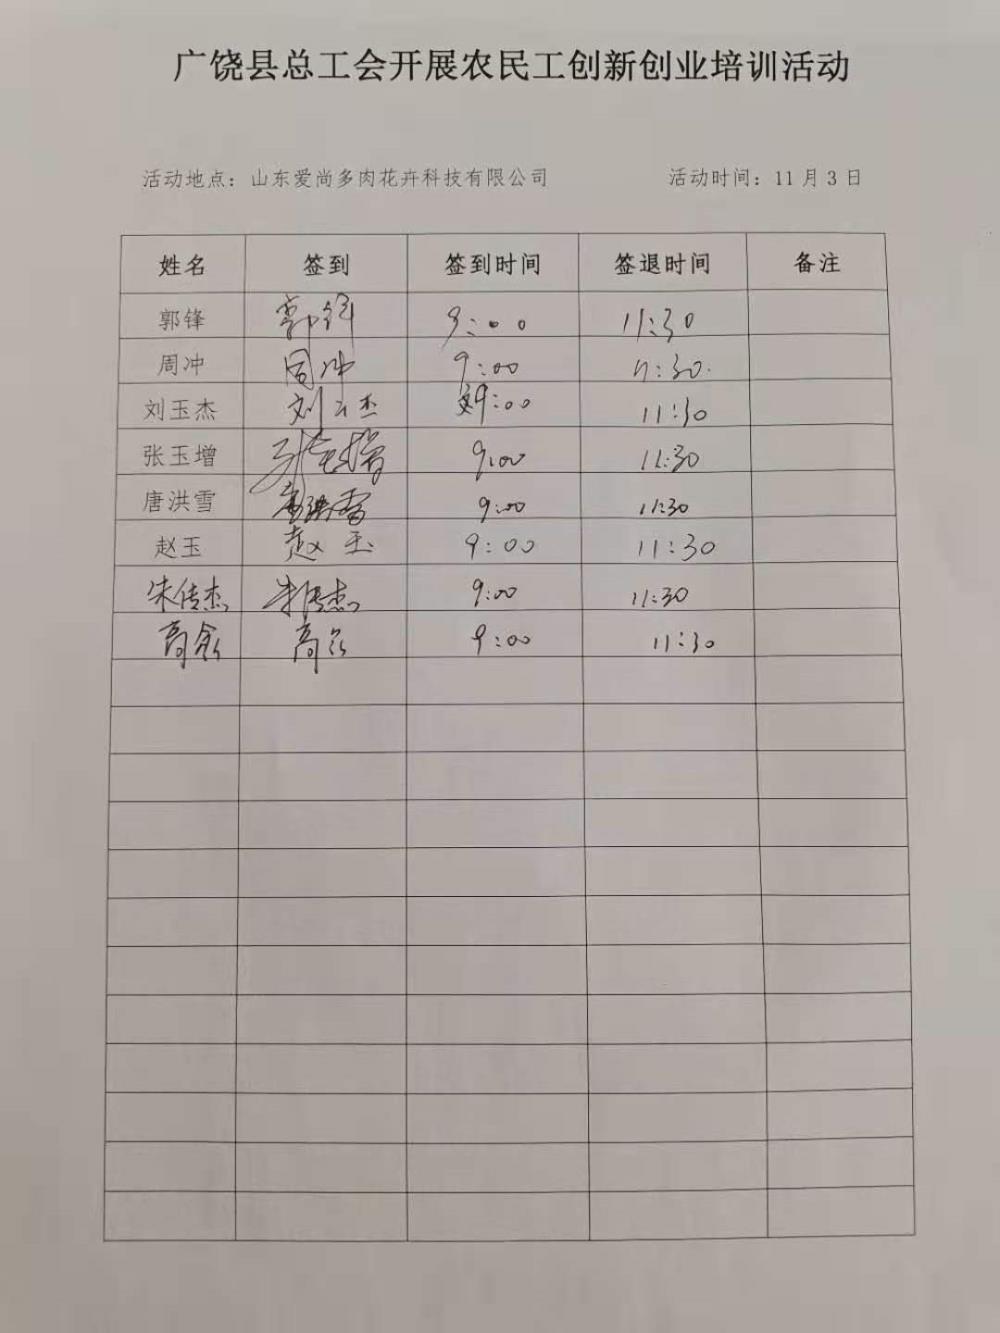 广饶县总工会开展农民工创新创业培训活动
活动地点：山东爱尚多肉花卉科技有限公司 活动时间：11月3日
姓名 签到 签到时间 签退时间 备注
郭锋 郭锋 9:00 11:30
周冲 周冲 9:00 11:30
刘玉杰 刘玉杰 9:00 11:30
张玉增 张玉增 9:00 11:30
唐洪雪 唐洪雪 9:00 11:30
赵玉 赵玉 9:00 11:30
朱传杰 朱传杰 9:00 11:30
高 高 9:00 11:30